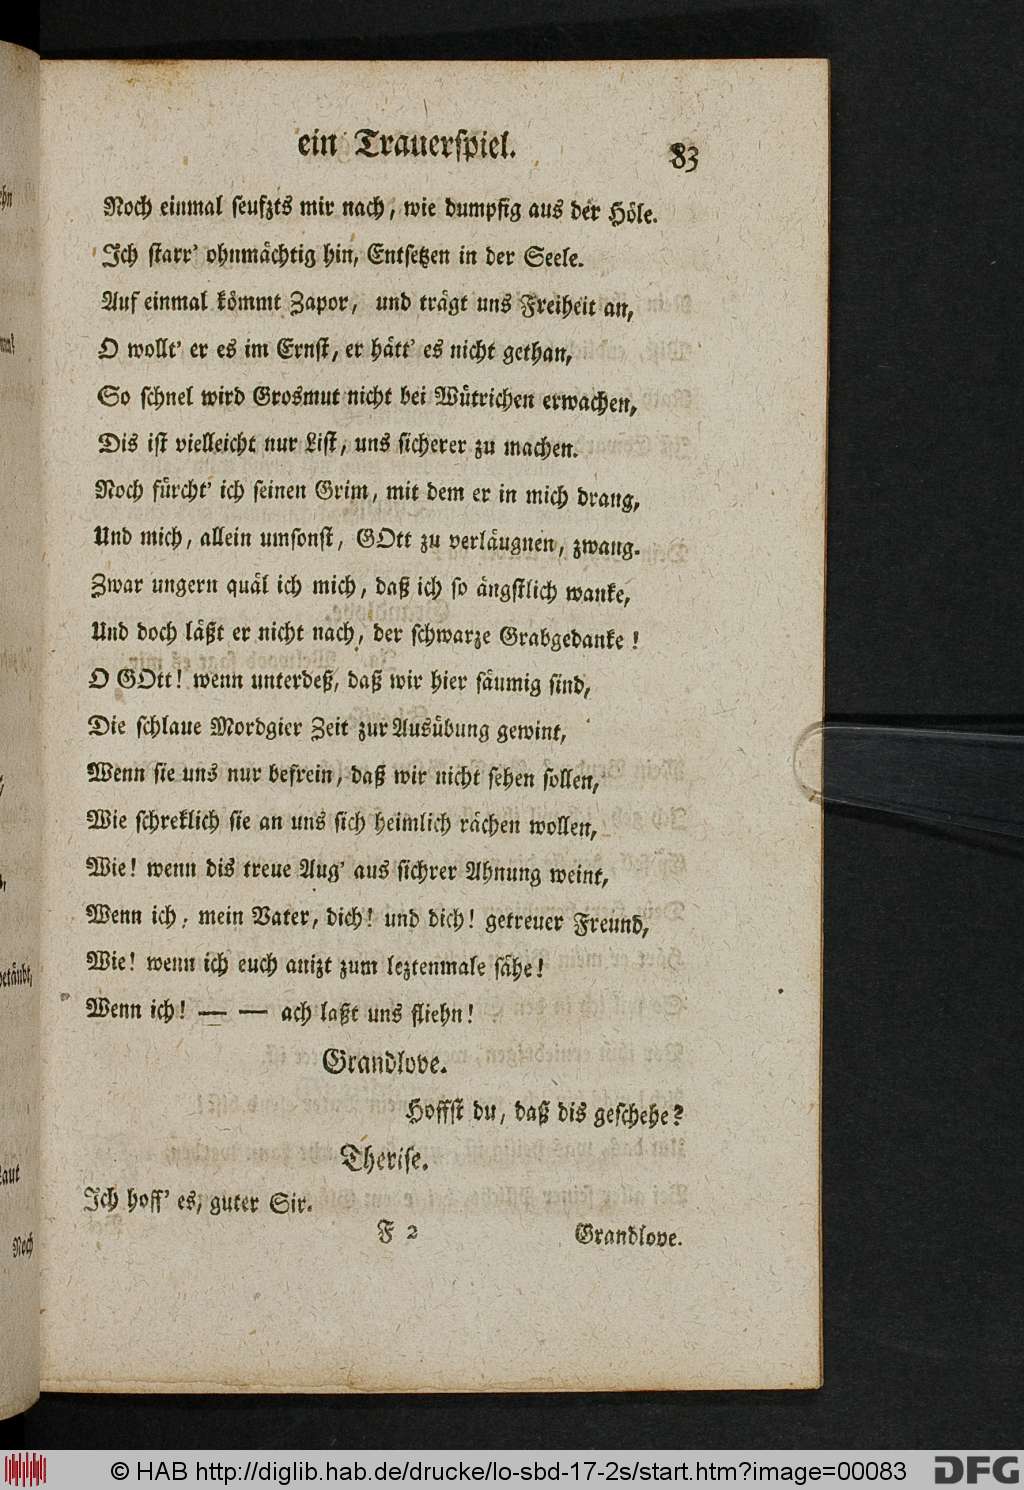 ein Trauerspiel. 83
Noch einmal seufzts mir nach, wie dumpfig aus der Höle.
Ich starr' ohnmächtig hin, Entsetzen in der Seele.
Auf einmal kömmt Zapor, und trägt uns Freiheit an,
O wollt' er es im Ernst, er hätt' es nicht gethan,
So schnel wird Grosmut nicht bei Wütrichen erwachen,
Dis ist vielleicht nur List, uns sicherer zu machen.
Noch fürcht' ich seinen Grim, mit dem er in mich drang,
Und mich, allein umsonst, GOtt zu verläugnen, zwang.
Zwar ungern quäl ich mich, daß ich so ängstlich wanke,
Und doch läßt er nicht nach, der schwarze Grabgedanke!
O GOtt! wenn unterdeß, daß wir hier säumig sind,
Die schlaue Mordgier Zeit zur Ausübung gewint,
Wenn sie uns nur befrein, daß wir nicht sehen sollen,
Wie schreklich sie an uns sich heimlich rächen wollen,
Wie! wenn dis treue Aug' aus sichrer Ahnung weint,
Wenn ich, mein Vater, dich! und dich! getreuer Freund,
Wie! wenn ich euch anizt zum leztenmale sähe!
Wenn ich! — — ach laßt uns fliehn!
Grandlove.
Hoffst du, daß dis geschehe?
Therise.
Ich hoff' es, guter Sir.
F 2 Grandlove.
etäubt,
Laut
Noch
© HAB http://diglib.hab.de/drucke/lo-sbd-17-2s/start.htm?image=00083
DFG